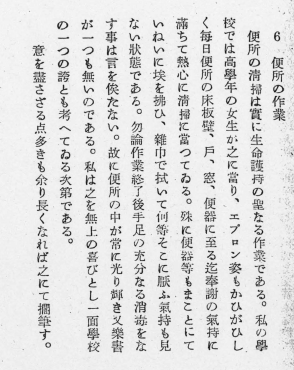 6 便所の作業
便所の淸掃は實に生命護持の聖なる作業である。私の學
校では高學年の女生が之に當り、エプロン姿もかひがひし
く每日便所の床板壁、戶、窓、便器に至る迄奉謝の氣持に
滿ちて熱心に淸掃に當つてゐる。殊に便器等もまことにて
いねいに埃を拂ひ、雜巾で拭いて何等そこに厭ふ氣持も見
ない狀態である。勿論作業終了後手足の充分なる消毒をな
す事は言を俟たない。故に便所の中が常に光り輝き又樂書
が一つも無いのである。私は之を無上の喜びとし一面學校
の一つの誇とも考へてゐる次第である。
意を盡さざる点多きも余り長くなれば之にて擱筆す。